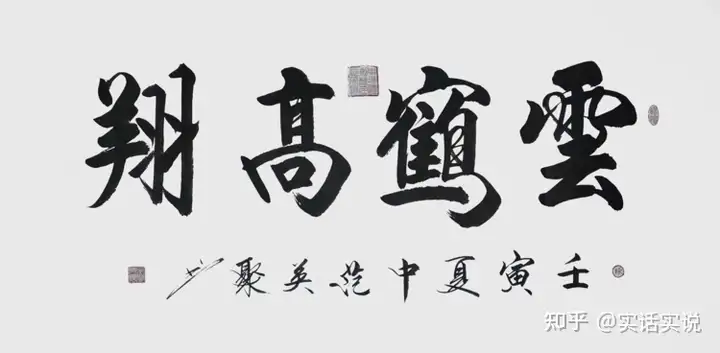 雲鶴高翔
壬寅夏中范英聚书
知乎 @实话实说